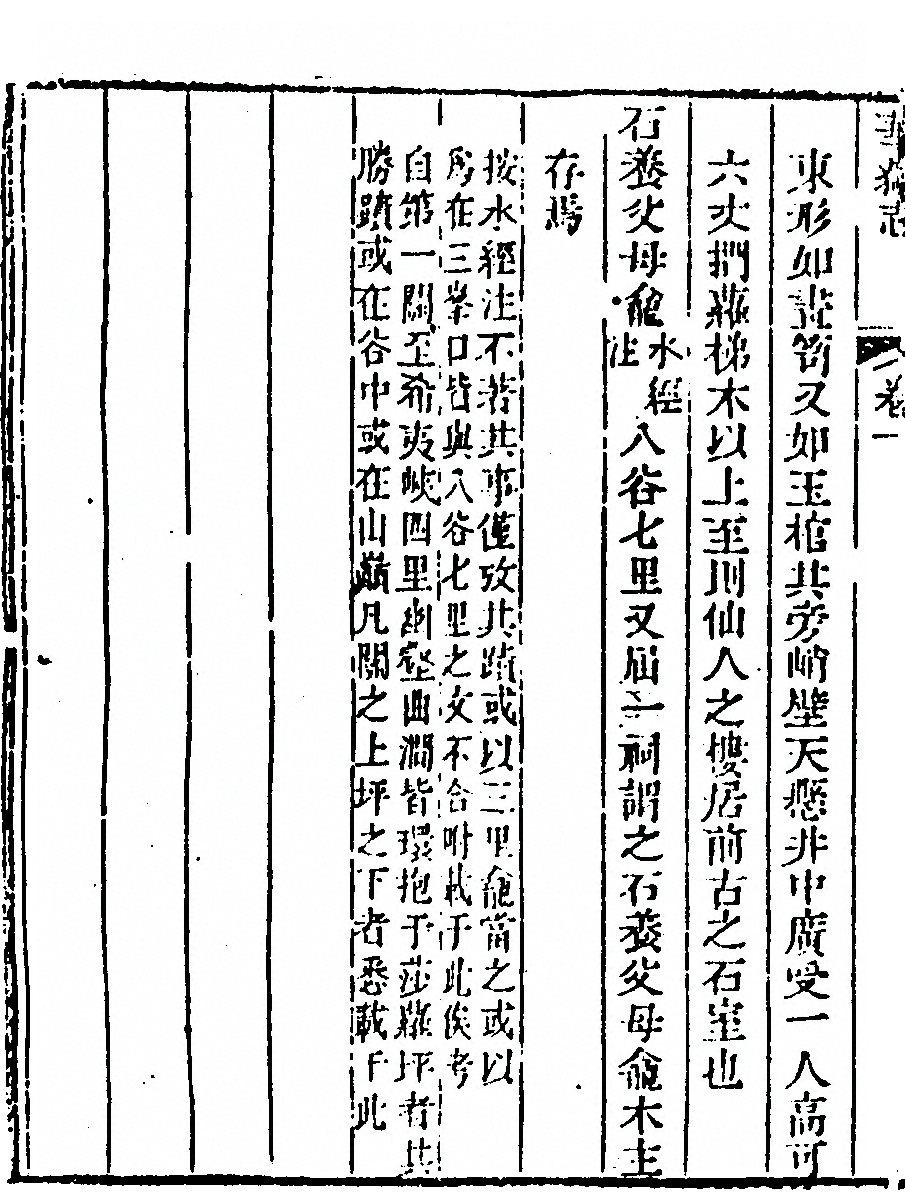 華嶽志 卷一
東形如書笥又如玉棺其旁峭壁天懸井中廣受一人高可
六丈捫蘿梯木以上至則仙人之樓居前古之石室也
石養父母龕水經注入谷七里又屆一祠謂之石養父母龕木主
存焉
按水經注不著其事僅攷其蹟或以三里龕當之或以
爲在三峯口皆與入谷七里之文不合附載于此俟考
自第一關至希夷峽四里幽壑曲澗皆環抱于莎蘿坪者其
勝蹟或在谷中或在山巔凡關之上坪之下者悉載于此